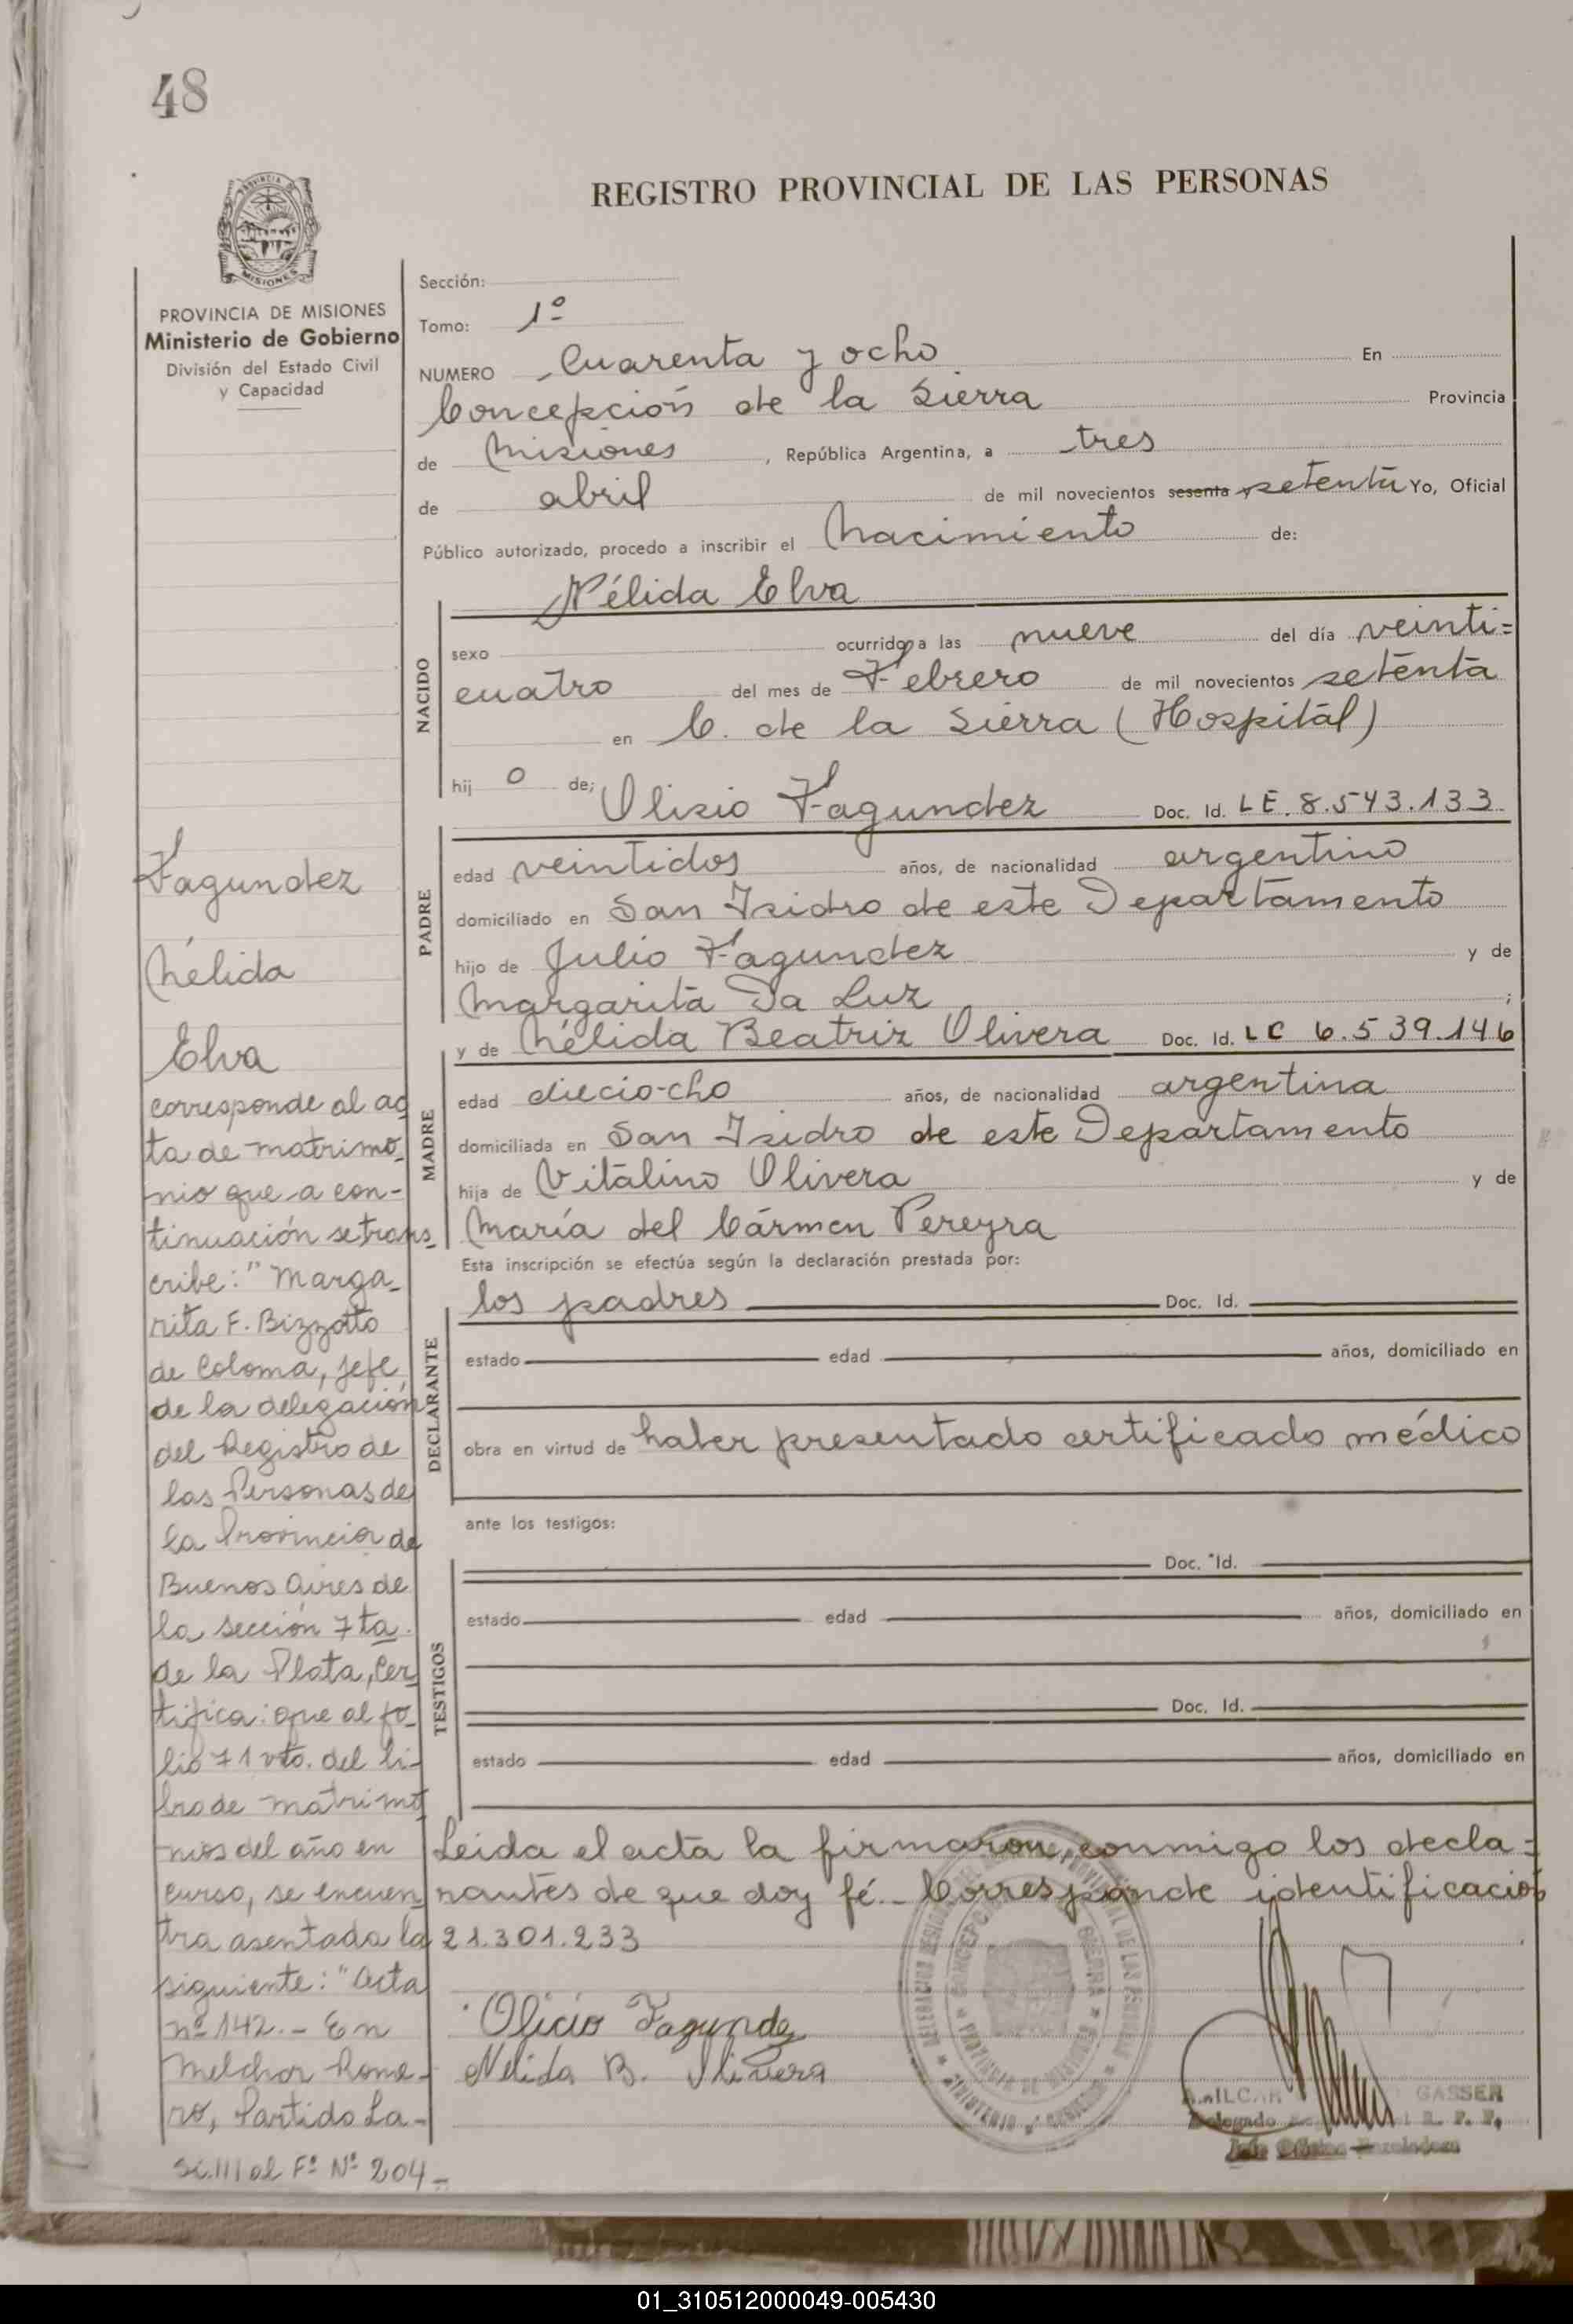 48
REGISTRO PROVINCIAL DE LAS PERSONAS
PROVINCIA DE MISIONES
Ministerio de Gobierno
División del Estado Civil
y Capacidad
Sección:
Tomo: 1º
NUMERO Cuarenta y ocho En
Concepción de la Sierra Provincia
de Misiones, República Argentina, a tres
de abril de mil novecientos sesenta y setenta Yo, Oficial
Público autorizado, procedo a inscribir el Nacimiento de:
Nélida Elva
NACIDO
sexo ocurrido a las nueve del día veinti=
cuatro del mes de Febrero de mil novecientos setenta
en C. de la Sierra (Hospital)
hij o de; Olisio Fagundez Doc. Id. LE. 8.543.133
PADRE
edad veintidos años, de nacionalidad argentino
domiciliado en San Isidro de este Departamento
hijo de Julio Fagundez y de
Margarita Da Luz ;
y de Nélida Beatriz Olivera Doc. Id. LC 6.539.146
MADRE
edad diecio-cho años, de nacionalidad argentina
domiciliada en San Isidro de este Departamento
hija de Vitalino Olivera y de
María del Cármen Pereyra
Esta inscripción se efectúa según la declaración prestada por:
los padres Doc. Id.
DECLARANTE
estado edad años, domiciliado en
obra en virtud de haber presentado certificado médico
ante los testigos:
TESTIGOS
Doc. Id.
estado edad años, domiciliado en
Doc. Id.
estado edad años, domiciliado en
Leida el acta la firmaron, conmigo los decla=
rantes de que doy fé.- Corresponde identificación
21.301.233
Olicio Fagundez
Nelida B. Olivera
GASSER
Fagundez
Nélida
Elva
corresponde al ac
ta de matrimo_
nio que a con-
tinuación se trans_
cribe: " Marga_
rita F. Bizzotto
de Coloma, Jefe
de la delegación
del Registro de
las Personas de
la Provincia de
Buenos Aires de
la sección 7ta.
de la Plata, Cer_
tifica: que al fo_
lio 71 vto. del li-
bro de matrimo_
nios del año en
curso, se encuen_
tra asentada la
siguiente: "Acta
nº 142.- En
Melchor Rome-
ro, Partido La-
al Fº Nº 204-
01_310512000049-005430